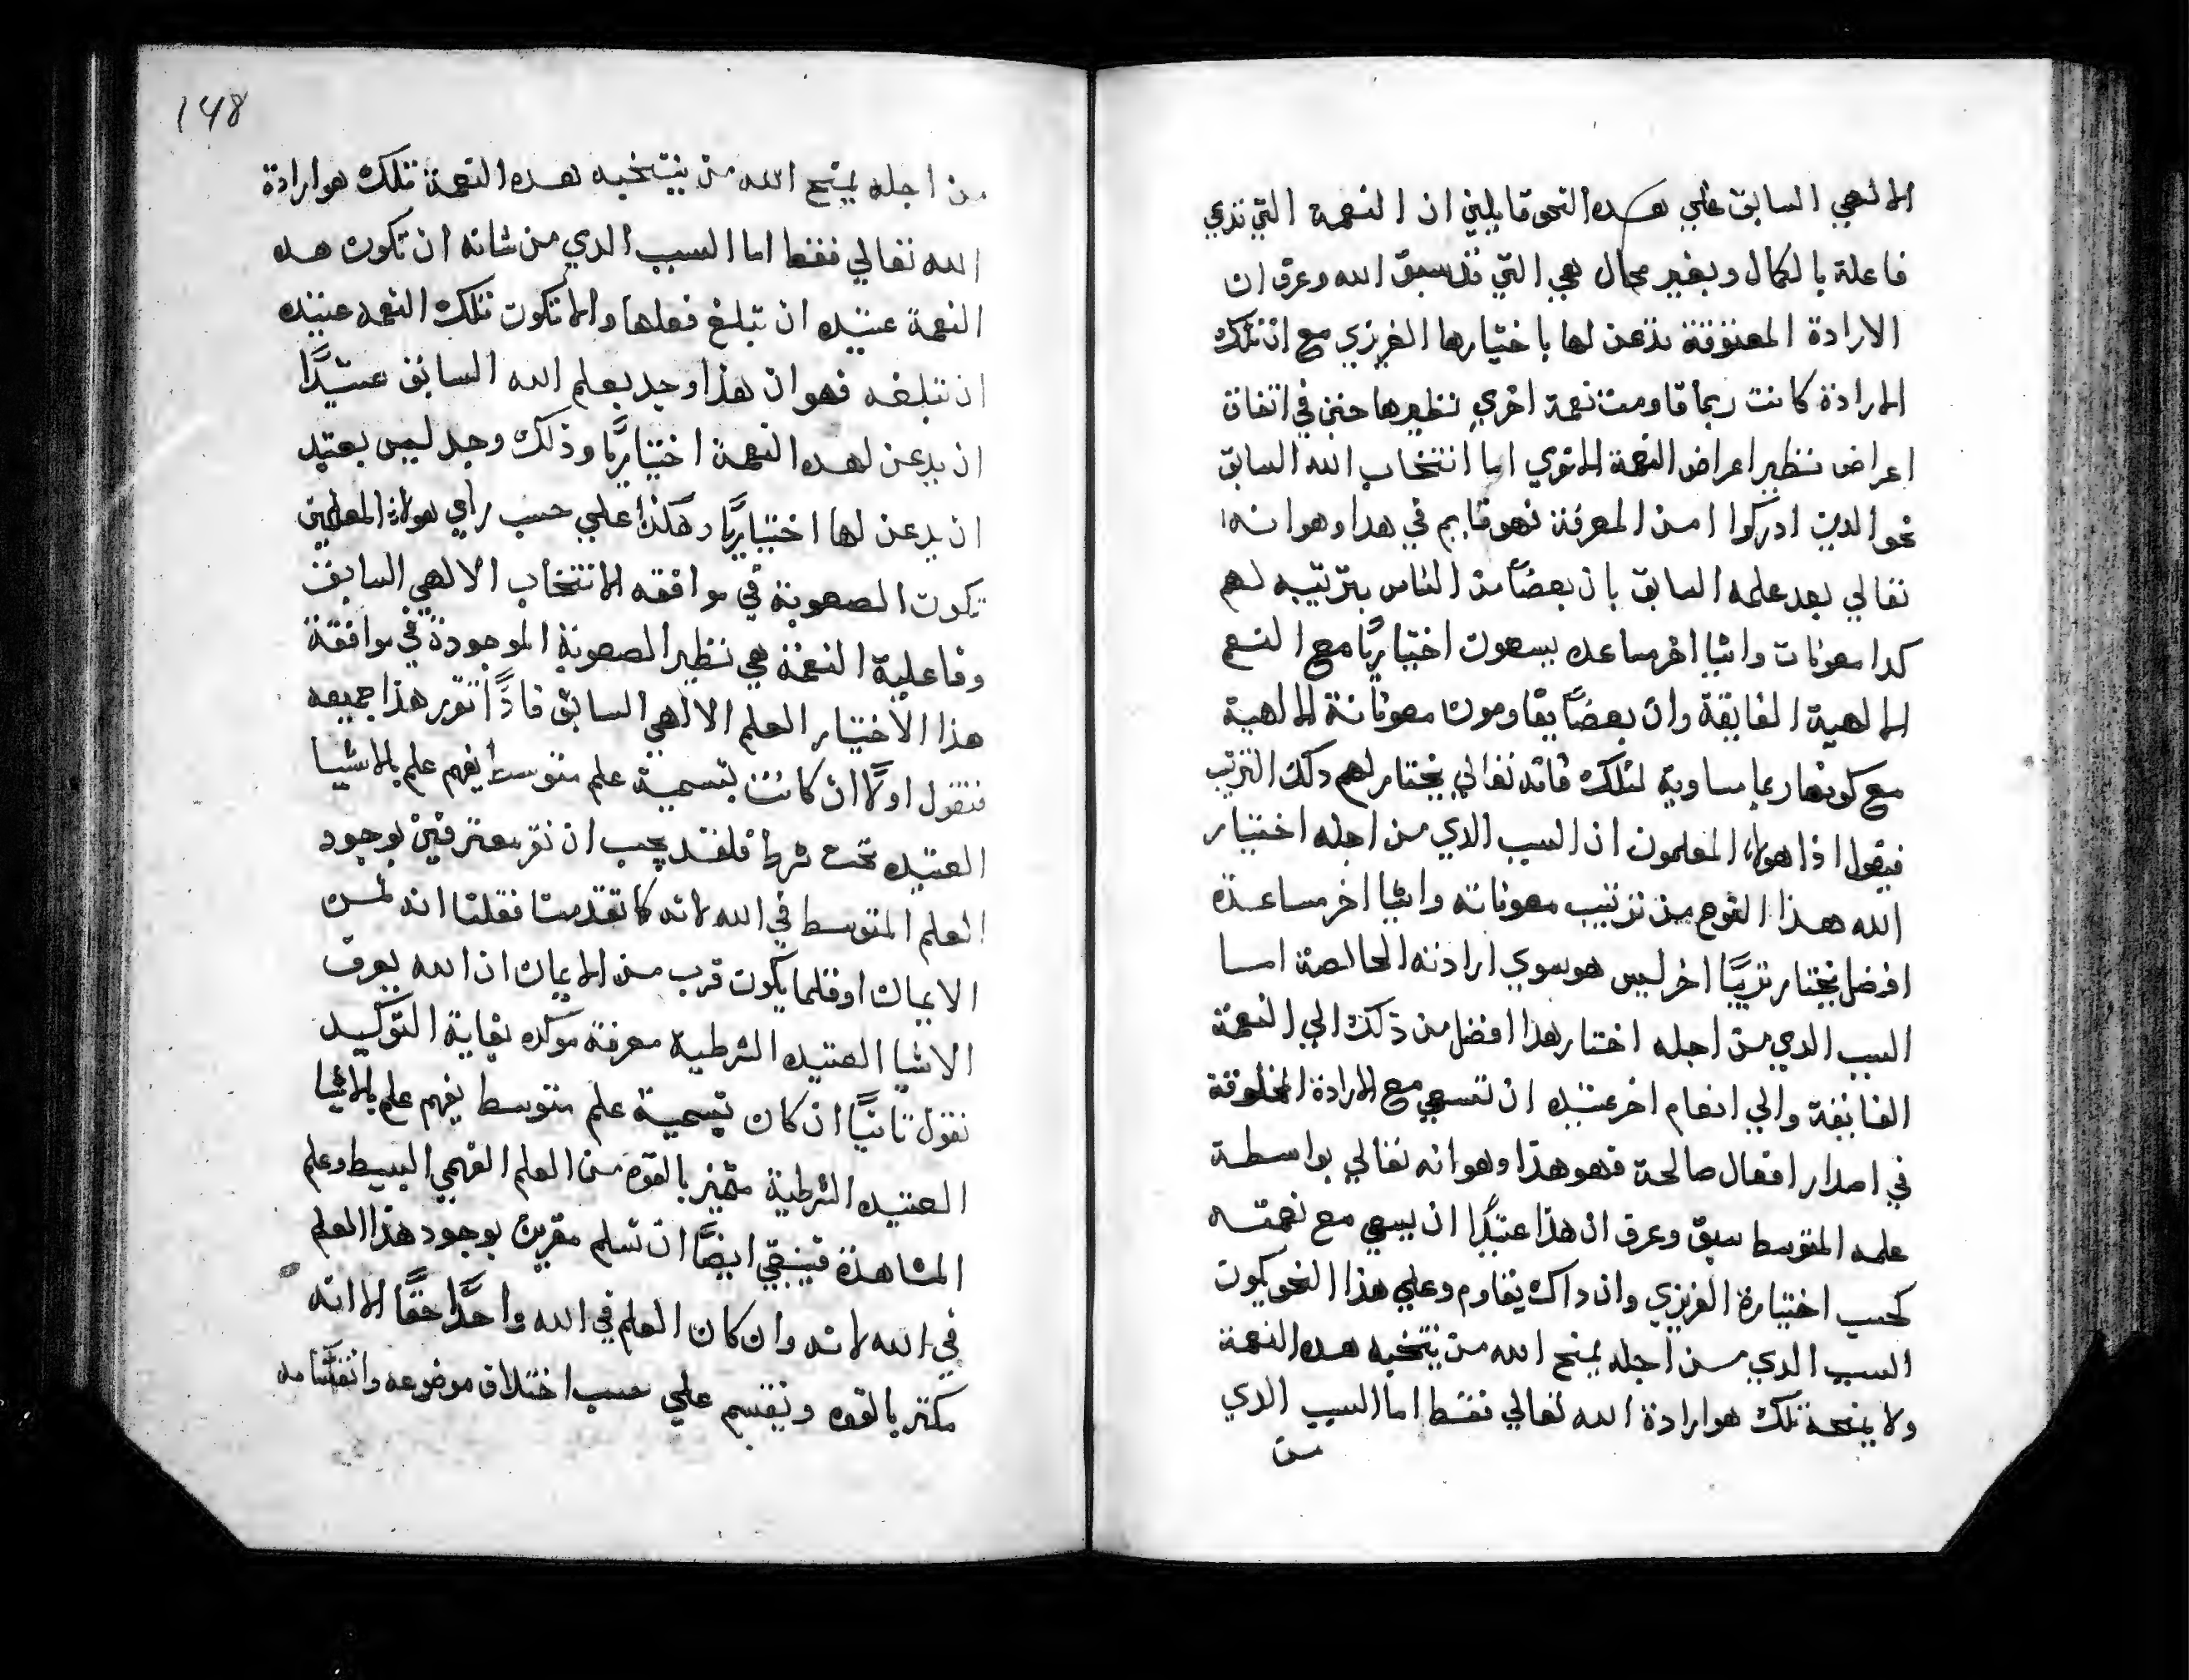 الالهي السابق علي هده النحو قايلين ان النعمة التي تدعي
فاعلة بالكمال وبغير محال هي التي قد سبق الله وعرف ان
الارادة المعتوقة تدعن لها باختيارها الغريزي مع ان تلك
الارادة كانت ربما قاومت نعمة اخري نظيرها حتي في اتفاق
اعراض نظير اعراض النعمة الاقوي اما انتخاب الله السابق
نحو الدين ادركوا من المعرفة فهو قايم في هدا وهو انه
تعالي بعد علمه السابق بان بعضًا من الناس بترتيبه لهم
كدا معونات واشيا اخر مساعده يسعون اختياريًا مع النعم
الالهية الفايقة وان بعضًا يقاومون معوناته الالهية
مع كونها ربما مساوية لتلك فانه تعالي يختار لهم دلك الترتيب
فيقول اذا هولاء المعلمون ان السبب الدي من اجله اختيار
الله هذا النوع من ترتيب معوناته واشيا اخر مساعدة
افضل يختار ترتيبًا اخر ليس هو سوي ارادته الخالصة اما
السبب الدي من اجله اختار هذا افضل من ذلك الي النعمة
الفايقة والي انعام اخر عتيده ان تسعي مع الارادة المخلوقة
في اصدار افعال صالحة فهو هذا وهو انه تعالي بواسطة
علمه المتوسط سبق وعرف ان هذا عتيدًا ان يسعي مع نعمته
كحسب اختيارة الغريزي وان داك يقاوم وعلي هذا النحو يكون
السبب الدي من اجله يمنح الله من ينتخبه هده النعمة
ولا يمنحة تلك هو ارادة الله تعالي فقط اما السبب الدي
من
148
من اجله يمنح الله من ينتخبه هده النعمة تلك هو ارادة
الله تعالي فقط اما السبب الدي من شانه ان تكون هده
النعمة عتيده ان تبلغ فعلها ولا تكون تلك النعمه عتيده
ان تبلغه فهو ان هذا وجد بعلم الله السابق عتيدًا
ان يدعن لهده النعمة اختياريًا وذلك وجد ليس بعتيد
ان يدعن لها اختياريًا وهكذا علي حسب راي هولاء المعلمين
تكون الصعوبة في موافقه الانتخاب الالهي السابق
وفاعلية النعمة هي نظير الصعوبة الموجودة في موافقة
هذا الاختيار العلم الالهي السابق فاذًا تقرر هذا جميعه
فنقول اولًا ان كانت بتسمية علم متوسط يفهم علم بالاشيا
العتيده تحت شرط فلقد يجب ان نقر معترفين بوجود
العلم المتوسط في الله لانه كما تقدمنا فقلنا انه لمن
الايمان او قلما يكون قرب من الايمان ان الله يعرف
الاشيا العتيده الشرطية معرفة موكده بغاية التوكيد
نقول ثانيًا ان كان تسمية علم متوسط يفهم علم بالاشيا
العتيده الشرطية متميز بالقوه من العلم الفهمي البسيط وعلم
المشاهدة فينبغي ايضًا ان نسلم مقرين بوجود هذا العلم
في الله لانه وان كان العلم في الله واحدًا حقًا الا انه
مكتر بالقوه وينقسم علي حسب اختلاق موضوعه وانقسامه